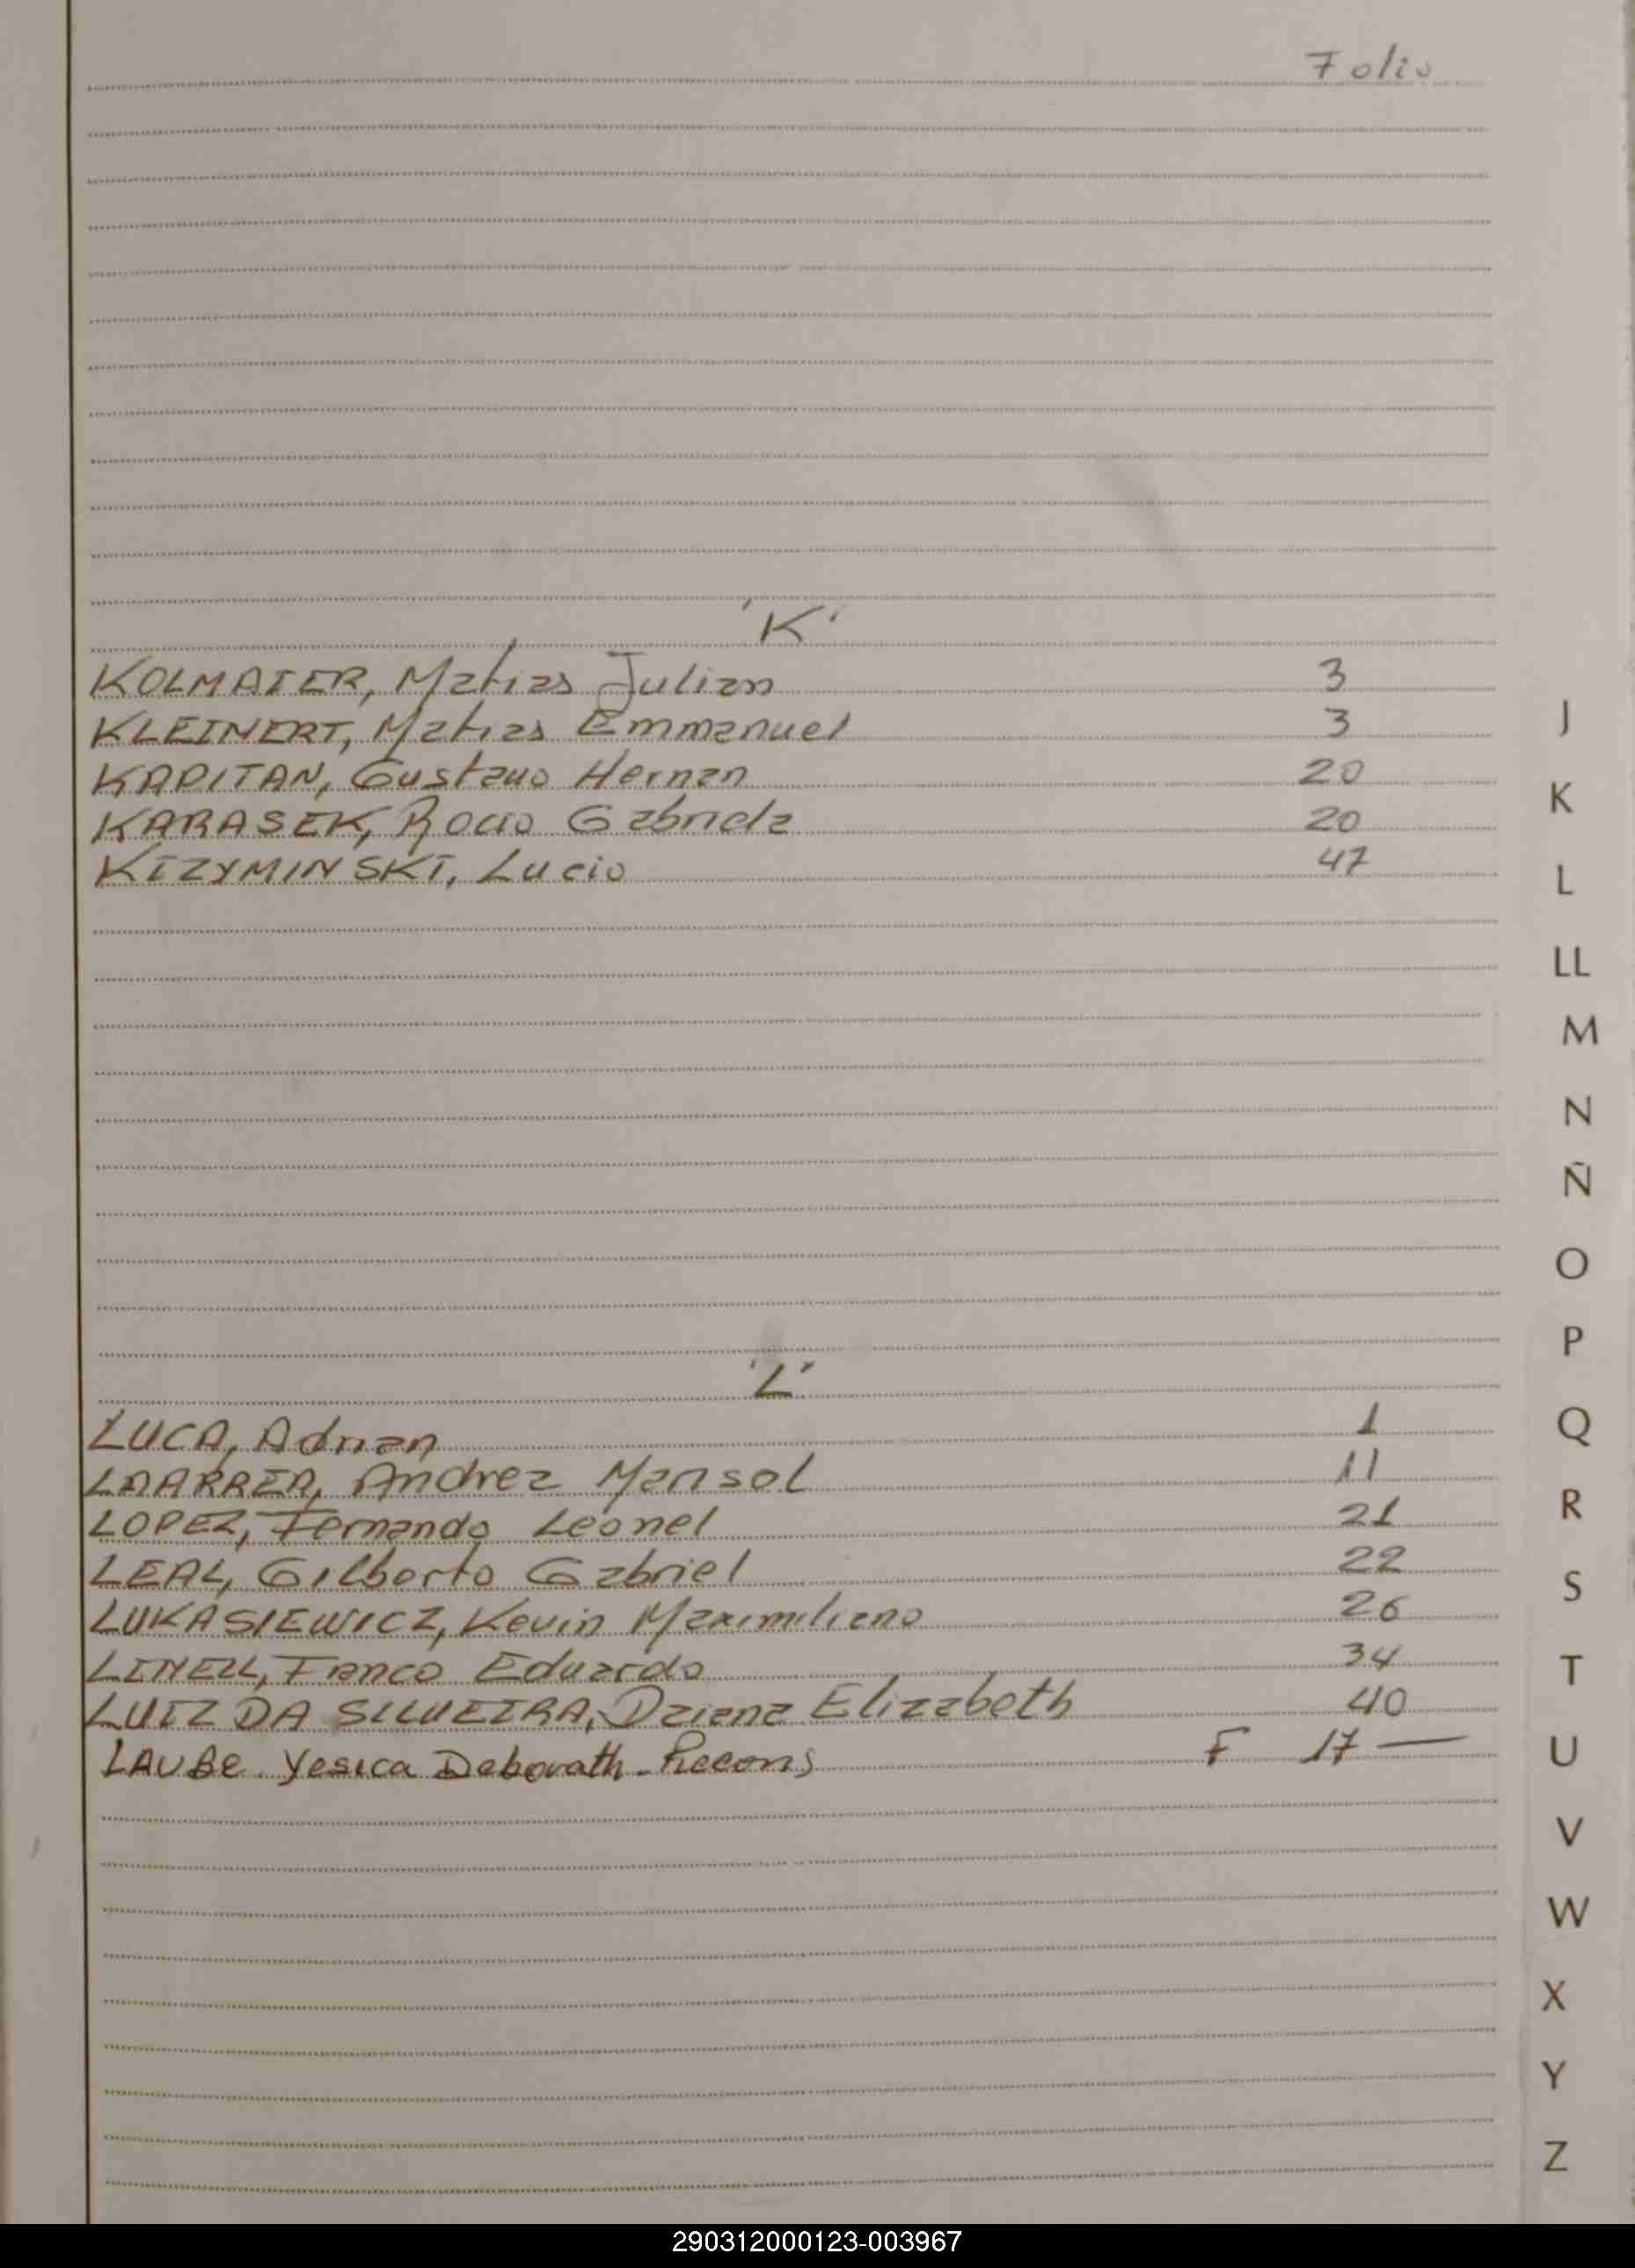 Folio
"K"
KOLMAIER, Matias Julian 3
KLEINERT, Matias Emmanuel 3
KAPITAN, Gustavo Hernan 20
KARASEK, Rocio Gabriela 20
KIZYMINSKI, Lucio 47
"L"
LUCA, Adrian 1
Andrea Marisol 11
LOPEZ, Fernando Leonel 21
LEAL, Gilberto Gabriel 22
LUKASIEWICZ, Kevin Maximiliano 26
Franco Eduardo 34
LUIZ DA SILVEIRA, Daiana Elizabeth 40
LAUBE. Yesica Deborath - Recons F 17 —
J
K
L
LL
M
N
Ñ
O
P
Q
R
S
T
U
V
W
X
Y
Z
290312000123-003967